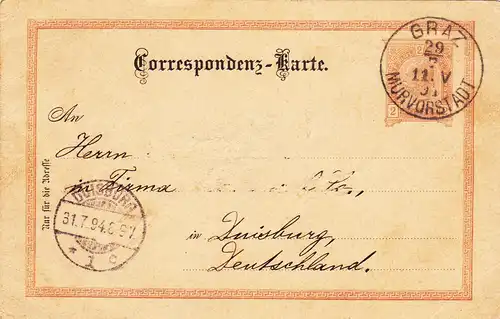 Correspondenz-Karte.
GRAZ
29
7
11. V
MURVORSTADT
2
An
Herrn
in Firma & Co.,
in Duisburg,
Deutschland.
Nur für die Adresse
DUISBURG
31.7.94.
* 1 c